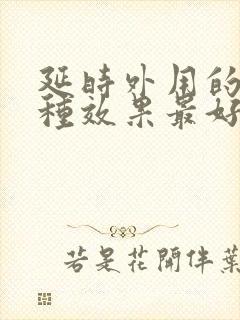 延時外用的
種效果最好
若是花開伴葉